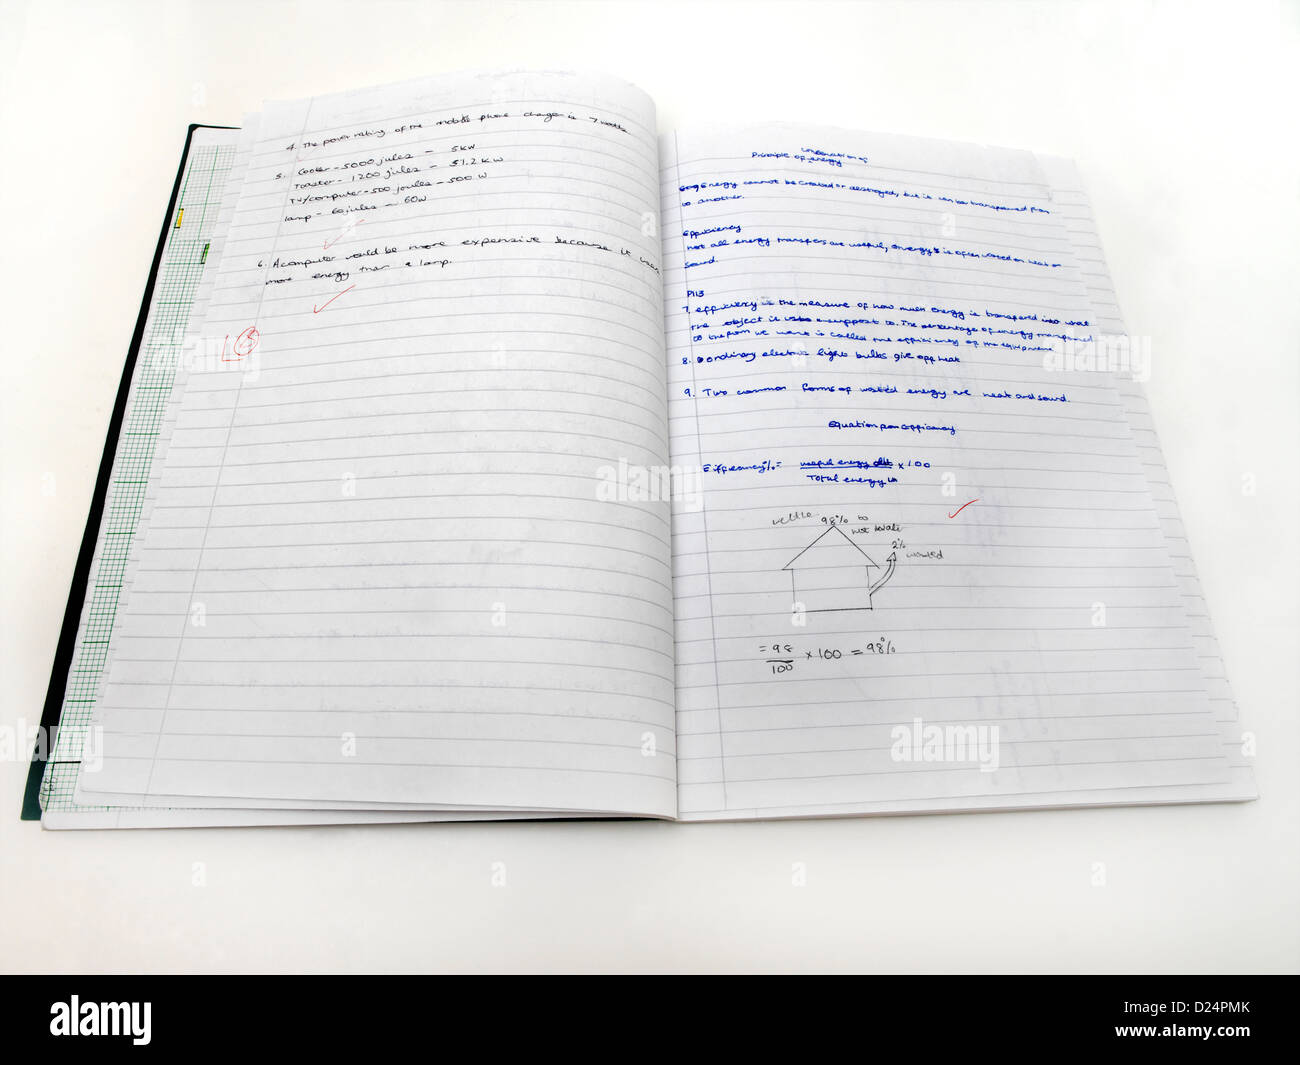 4. The power rating of the mobile phone charge is 7 watts
5. Cooler - 5000 jules - 5kW
Toaster - 1200 jules - 51.2 kW
TV/computer - 500 joules - 500 W
lamp - 60 jules - 60W
6. A computer would be more expensive because it uses
more energy than a lamp.
conservation of
Principle of energy
Energy cannot be created or destroyed, but it can be transferred from
to another.
Efficiency
Not all energy transfers are useful, energy is often wasted as heat or
sound.
P113
7. efficiency is the measure of how much energy is transferd into what
the object is suppost to. The percentage of energy transferred
to the form we want is called the efficiency of the equipment
8. ordinary electric lights bulbs give off heat
9. Two common forms of wasted energy are heat and sound.
Equation for efficiency
Efficiency% = useful energy out × 100
Total energy in
kettle. 98% to
hot water
2%
wasted
= 98
100 × 100 = 98%
alamy
a
alamy
Image ID: D24PMK
www.alamy.com